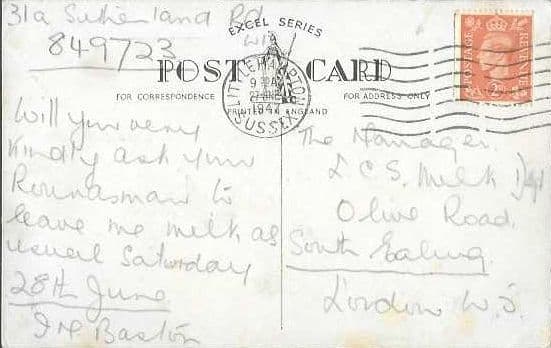 31a Sutherland Rd
W13
849723
EXCEL SERIES
POST CARD
FOR CORRESPONDENCE
FOR ADDRESS ONLY
PRINTED IN ENGLAND
LITTLEHAMPTON
SUSSEX
27 JNE
1947
POSTAGE
REVENUE
Will you very
kindly ask your
Roundsman to
leave me milk as
usual Saturday
28th June
Baston
The Manager
L.C.S. Milk
Olive Road.
South Ealing
London W.5.